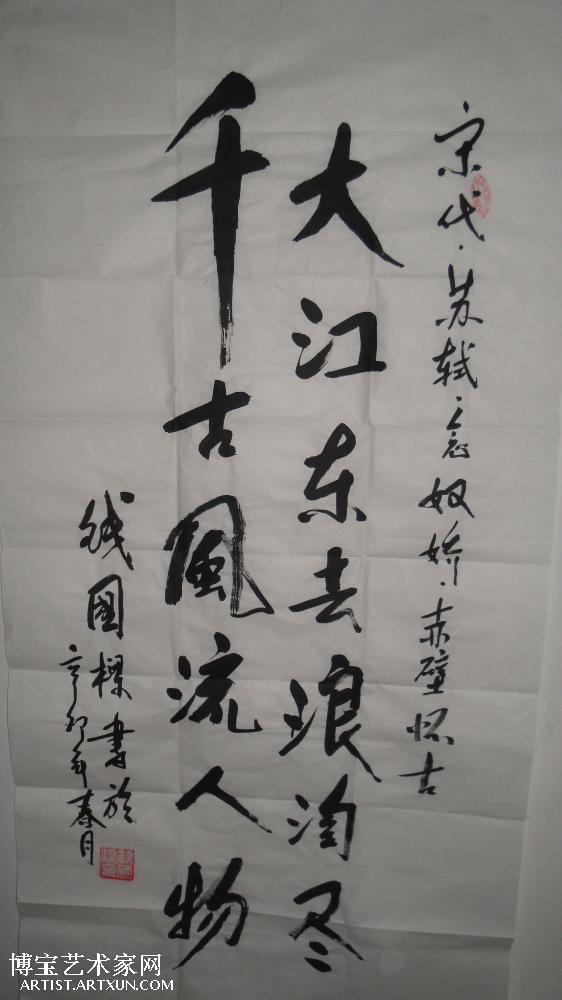 宋代·苏轼·念奴娇·赤壁怀古
大江东去浪淘尽
千古风流人物
钱國樑書於
辛卯年春月
博宝艺术家网
ARTIST.ARTXUN.COM